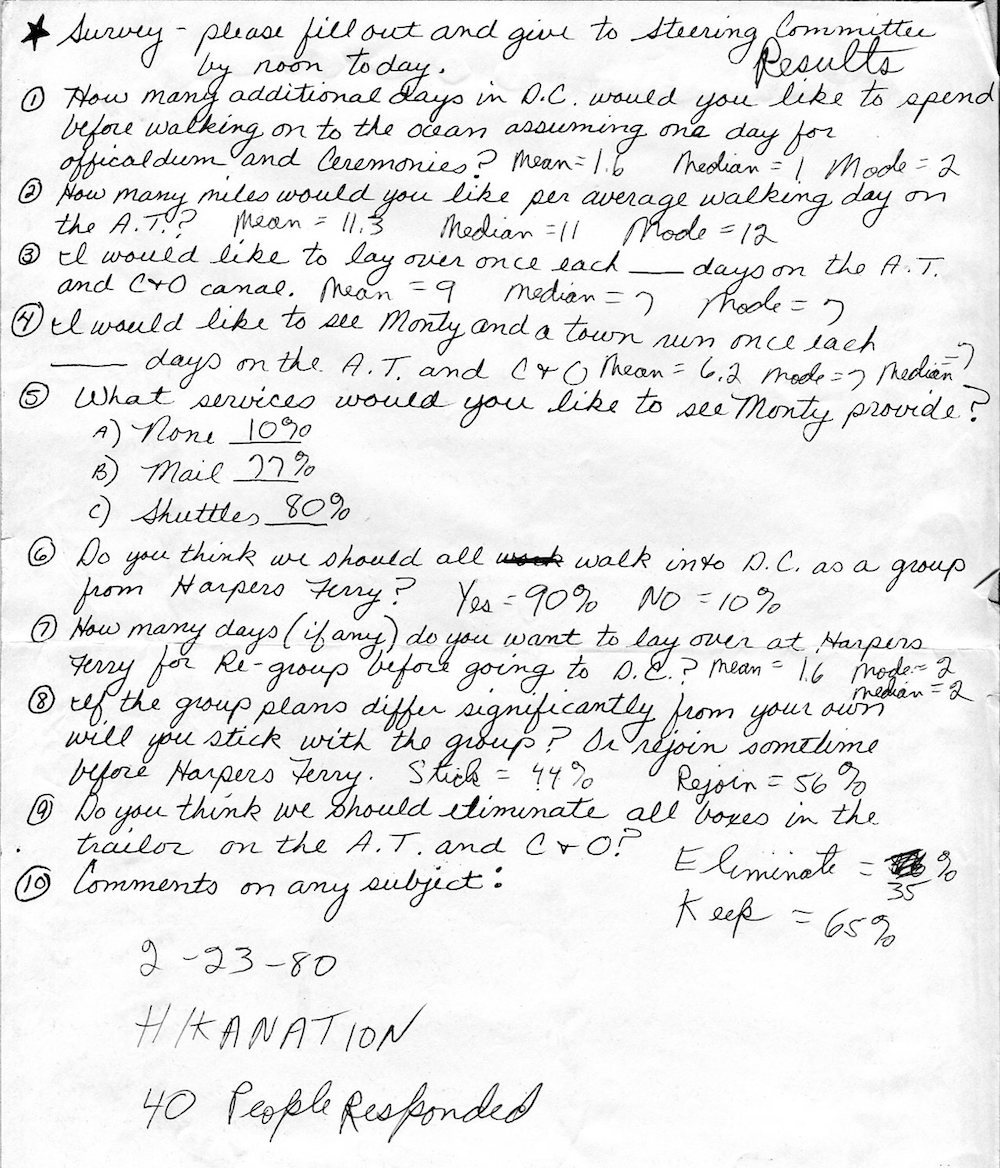 ★ Survey - please fill out and give to Steering Committee
by noon today. Results
① How many additional days in D.C. would you like to spend
before walking on to the ocean assuming one day for
officaldum and Ceremonies? Mean = 1.6 Median = 1 Mode = 2
② How many miles would you like per average walking day on
the A.T.? Mean = 11.3 Median = 11 Mode = 12
③ I would like to lay over once each ___ days on the A.T.
and C+O canal. Mean = 9 Median = 7 Mode = 7
④ I would like to see Monty and a town run once each
____ days on the A.T. and C+O Mean = 6.2 Mode = 7 Median = 7
⑤ What services would you like to see Monty provide?
A) None 10%
B) Mail 77%
C) Shuttles 80%
⑥ Do you think we should all walk into D.C. as a group
from Harpers Ferry? Yes = 90% NO = 10%
⑦ How many days (if any) do you want to lay over at Harpers
Ferry for Re-group before going to D.C.? Mean = 1.6 Mode = 2
Median = 2
⑧ If the group plans differ significantly from your own
will you stick with the group? Or rejoin sometime
before Harpers Ferry. Stick = 44% Rejoin = 56%
⑨ Do you think we should eliminate all boxes in the
trailor on the A.T. and C+O?
Eliminate = %
35
⑩ Comments on any subject:
Keep = 65%
2-23-80
HIKANATION
40 People Responded